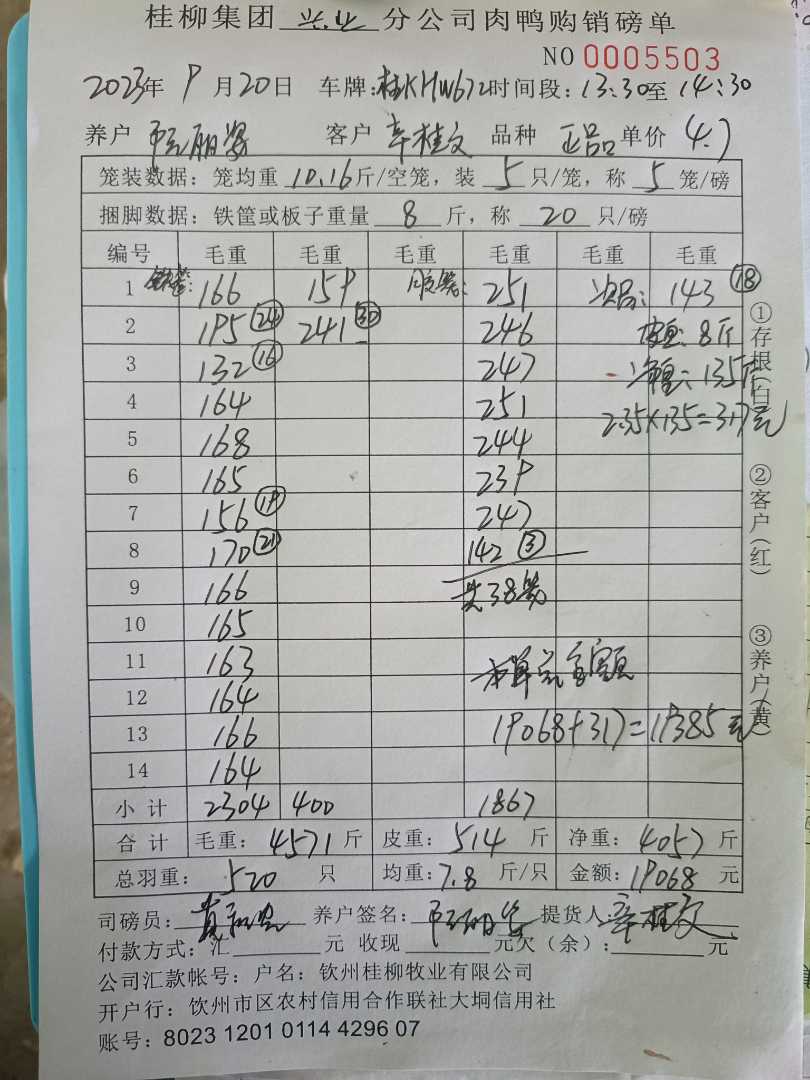 桂柳集团 兴业 分公司肉鸭购销磅单
NO 0005503
2023年 9月20日 车牌:桂KHW672时间段:13:30至 14:30
养户 客户 辛桂文 品种 正品 单价 4.7
笼装数据:笼均重 10.16斤/空笼,装 5 只/笼,称 5 笼/磅
捆脚数据:铁筐或板子重量 8 斤,称 20 只/磅
编号 毛重 毛重 毛重 毛重 毛重 毛重
1 166 159 251 次品: 143 ⑱
2 195 ㉔ 241 ㉚ 246 皮重: 8斤
3 132 ⑯ 247 净重: 135斤
4 164 251 2.35×135=317元
5 168 244
6 165 239
7 156 ⑲ 247
8 170 ㉑ 142 ③
9 166 共38笼
10 165
11 163 本单总金额
12 164
13 166 19068+317=19385元
14 164
小计 2304 400 1867
合计 毛重: 4571 斤 皮重: 514 斤 净重: 4057 斤
总羽重: 520 只 均重: 7.8 斤/只 金额: 19068 元
司磅员: 养户签名: 提货人: 辛桂文
付款方式:汇 元 收现 元欠(余): 元
公司汇款帐号:户名:钦州桂柳牧业有限公司
开户行:饮州市区农村信用合作联社大垌信用社
账号:8023 1201 0114 4296 07
①存根(白)
②客户(红)
③养户(黄)